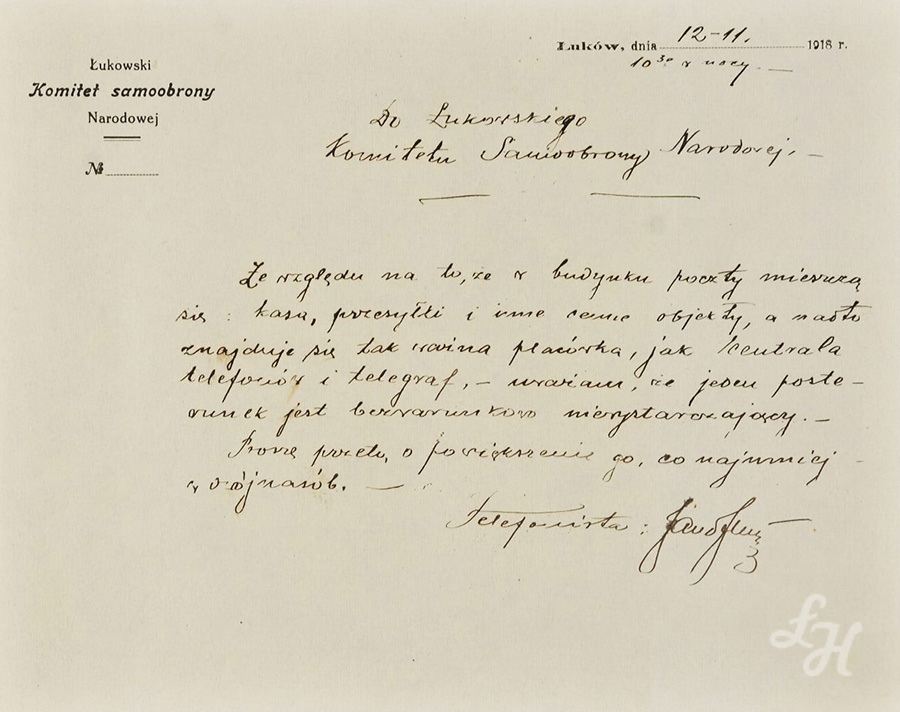 Łuków, dnia 12-11. 1918 r.
10 30 w nocy. —
Łukowski
Komitet samoobrony
Narodowej
№
Do Łukowskiego
Komitetu Samoobrony Narodowej. —
Ze względu na to, że w budynku poczty mieszczą
się: kasa, przesyłki i inne cenne objekty, a nadto
znajduje się tak ważna placówka, jak centrala
telefonów i telegraf, — uważam, że jeden poste-
runek jest bezwarunkowo niewystarczający. —
Proszę przeto, o powiększenie go, co najmniej
w dwójnasób. —
Telefonista:
ŁH